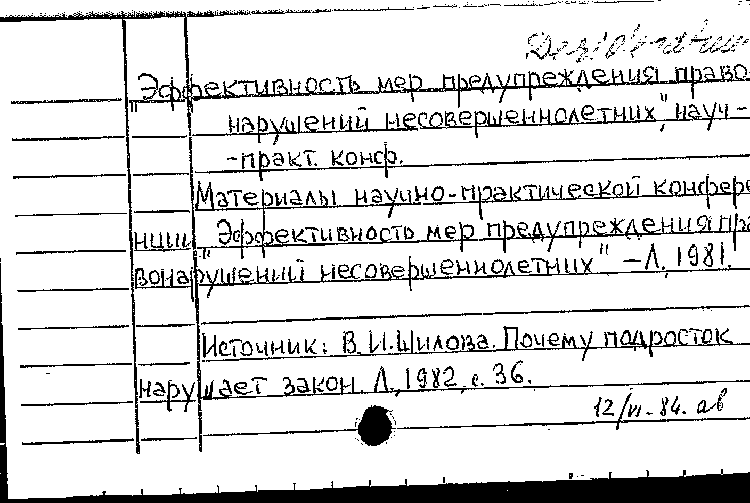 Desideratum
„Эффективность мер предупреждения право-
нарушений несовершеннолетних", науч-
-практ. конф.
Материалы научно-практической конфере
нции „Эффективность мер предупреждения пра
вонарушений несовершеннолетних" – Л., 1981.
Источник: В.И.Шилова. Почему подросток
нарушает закон. Л., 1982, с. 36.
12/VI-84. ав